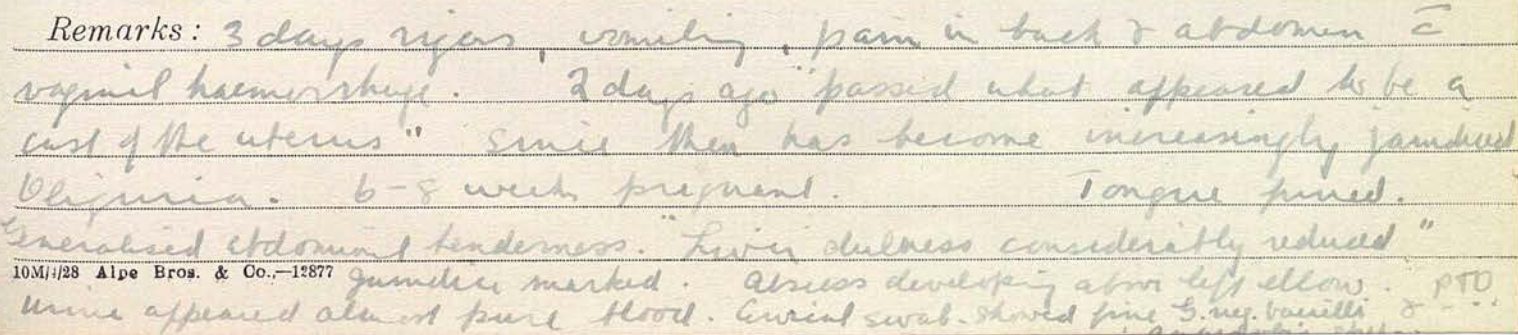 Remarks: 3 days rigors, vomiting, pain in back & abdomen c̄
vaginal haemorrhage. 2 days ago "passed what appeared to be a
cast of the uterus" Since then has become increasingly jaundiced
Oliguria. 6-8 weeks pregnant. Tongue furred.
Generalised abdominal tenderness. "Liver dulness considerably reduced"
10M/4/28 Alpe Bros. & Co.,—12877 Jaundice marked. Abscess developing above left elbow. PTO
Urine appeared almost pure blood. swab showed fine G. neg. bacilli &